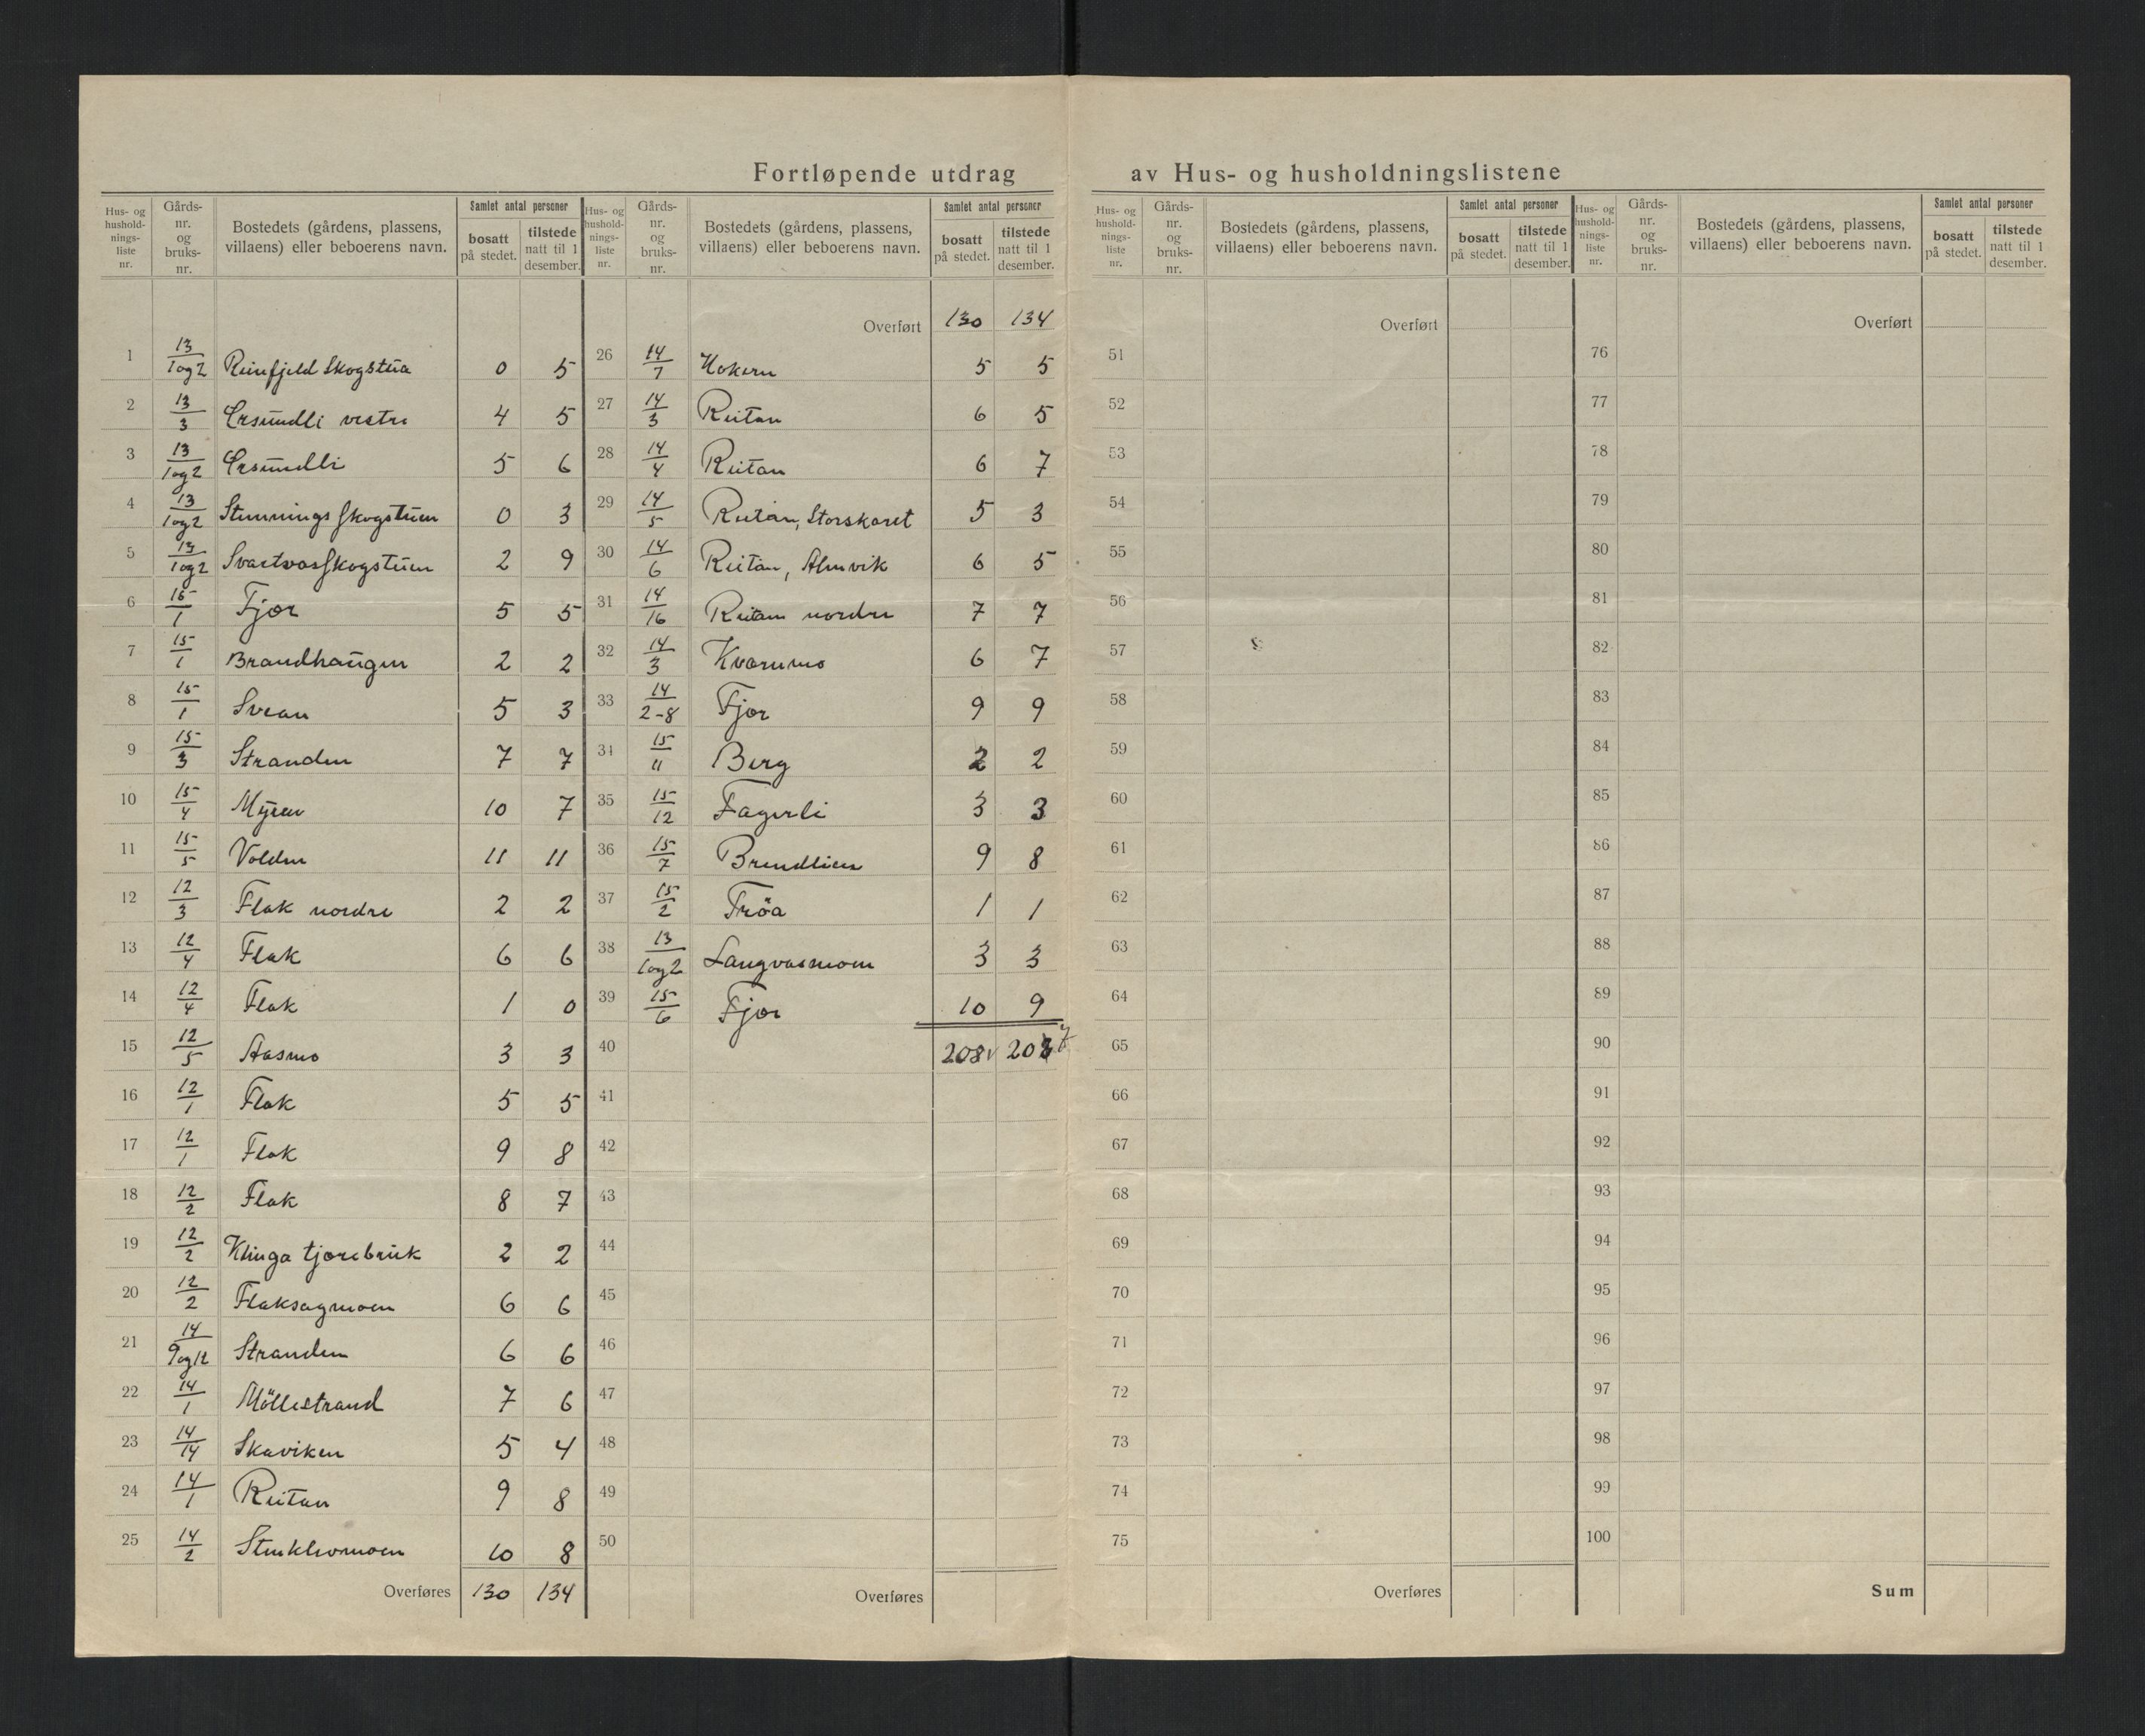 Fortløpende utdrag av Hus- og husholdningslistene
Hus- og hushold- nings- liste nr. Gårds- nr. og bruks- nr. Bostedets (gårdens, plassens, villaens) eller beboerens navn. Samlet antal personer bosatt på stedet. tilstede natt til 1 desember.
1 13/1og2 Reinfjeld Skogstua 0 5
2 13/3 Ersundli vestre 4 5
3 13/1og2 Ersundli 5 6
4 13/1og2 Skogstuen 0 3
5 13/1og2 Svartvasskogstuen 2 9
6 15/1 Fjær 5 5
7 15/1 Brandhaugen 2 2
8 15/1 Svean 5 3
9 15/3 Stranden 7 7
10 15/4 Myren 10 7
11 15/5 Volden 11 11
12 12/3 Flak nordre 2 2
13 12/4 Flak 6 6
14 12/4 Flak 1 0
15 12/5 Aasmo 3 3
16 12/1 Flak 5 5
17 12/1 Flak 9 8
18 12/2 Flak 8 7
19 12/2 Klinga tjærebruk 2 2
20 12/2 Flaksagmoen 6 6
21 14/9og12 Stranden 6 6
22 14/1 Möllestrand 7 6
23 14/14 Skaviken 5 4
24 14/1 Reitan 9 8
25 14/2 10 8
Overføres 130 134
Hus- og hushold- nings- liste nr. Gårds- nr. og bruks- nr. Bostedets (gårdens, plassens, villaens) eller beboerens navn. Samlet antal personer bosatt på stedet. tilstede natt til 1 desember.
Overført 130 134
26 14/7 5 5
27 14/3 Reitan 6 5
28 14/4 Reitan 6 7
29 14/5 Reitan, Storskaret 5 3
30 14/6 Reitan, Almvik 6 5
31 14/16 Reitan nordre 7 7
32 14/3 Kvernmo 6 7
33 14/2-8 Fjær 9 9
34 15/11 Berg 2 2
35 15/12 Fagerli 3 3
36 15/7 Brendlien 9 8
37 15/2 Tröa 1 1
38 13/1og2 Langvasmoen 3 3
39 15/6 Fjær 10 9
40 208 207
41
42
43
44
45
46
47
48
49
50
Overføres
Hus- og hushold- nings- liste nr. Gårds- nr. og bruks- nr. Bostedets (gårdens, plassens, villaens) eller beboerens navn. Samlet antal personer bosatt på stedet. tilstede natt til 1 desember.
Overført
51
52
53
54
55
56
57
58
59
60
61
62
63
64
65
66
67
68
69
70
71
72
73
74
75
Overføres
Hus- og hushold- nings- liste nr. Gårds- nr. og bruks- nr. Bostedets (gårdens, plassens, villaens) eller beboerens navn. Samlet antal personer bosatt på stedet. tilstede natt til 1 desember.
Overført
76
77
78
79
80
81
82
83
84
85
86
87
88
89
90
91
92
93
94
95
96
97
98
99
100
Sum